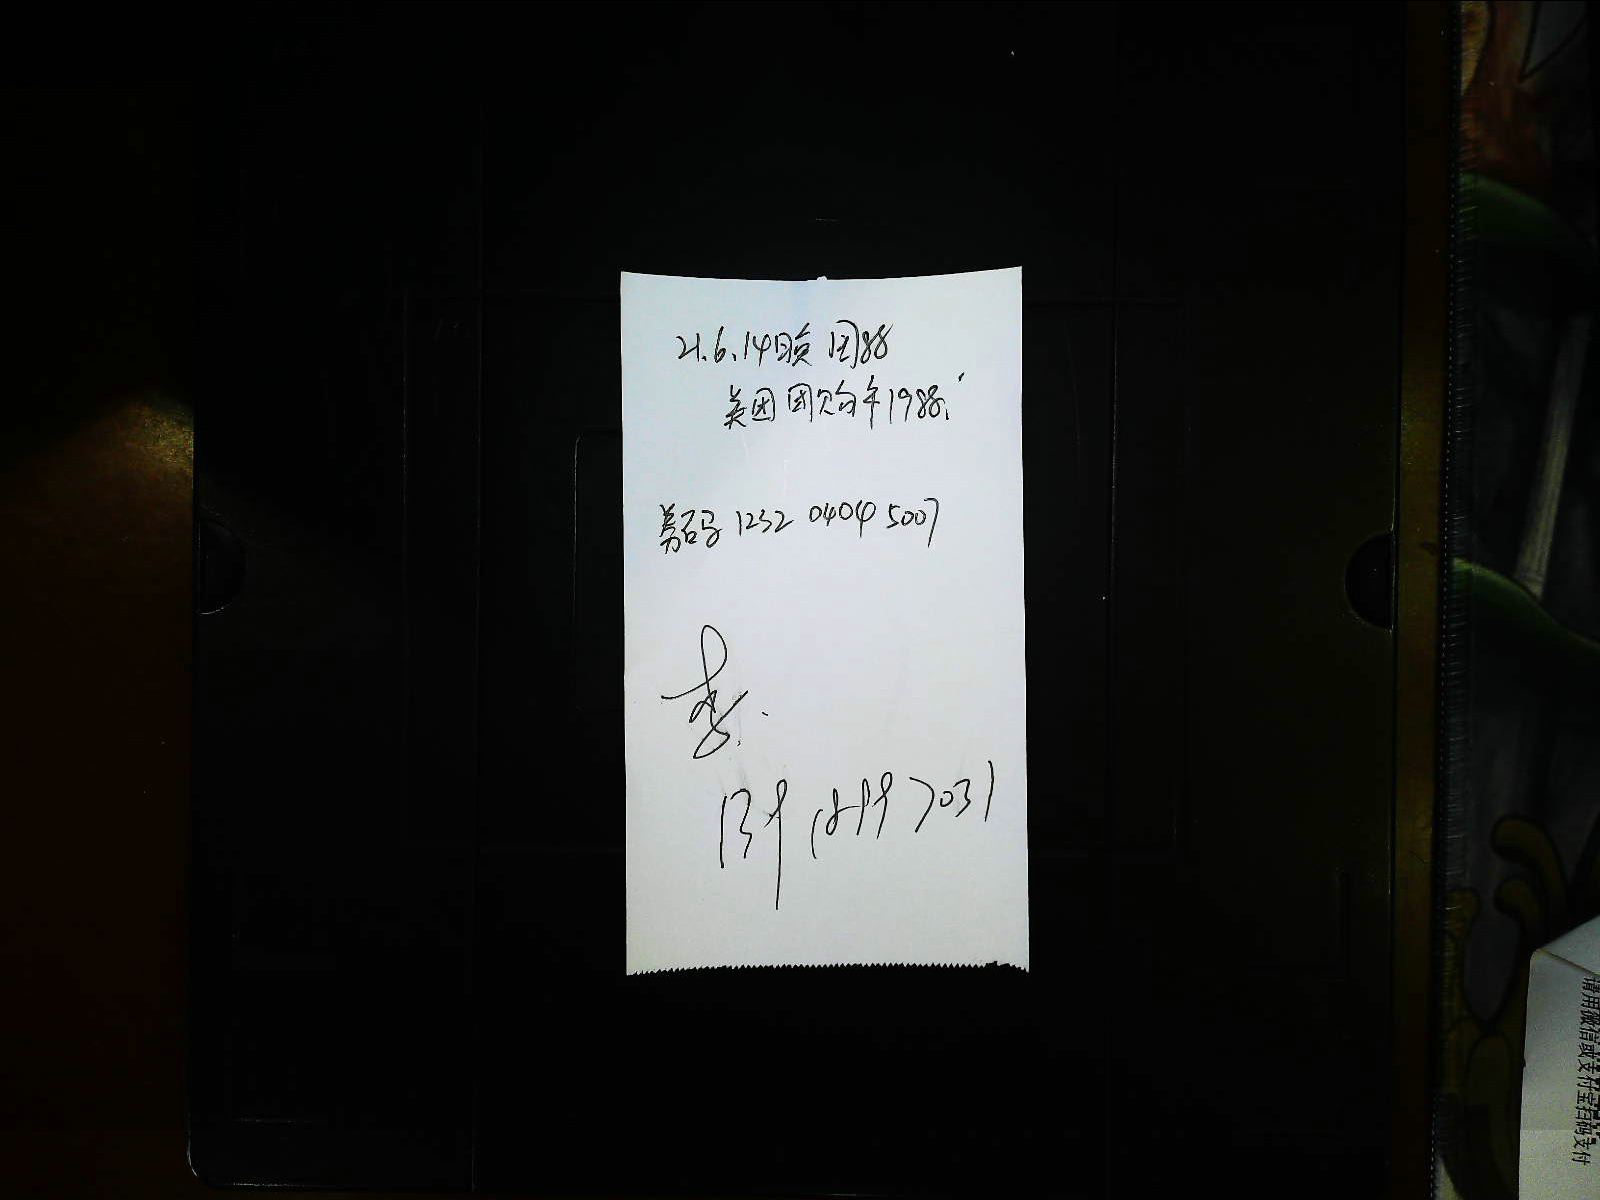 21.6.14日 团88
美团团购年1988.
券码 1232 0404 5007
李.
139 1899 7031
请用微信或支付宝扫码支付